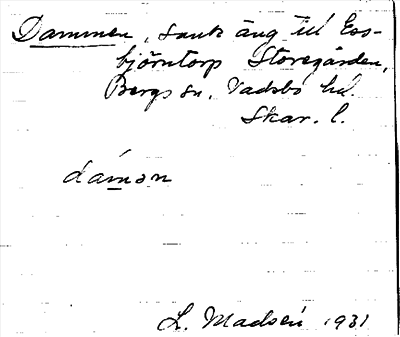 Dammen, sank äng till Ess-
björntorp Storegården,
Bergs sn. Vadsbo hd.
Skar. l.
dámǝn
L. Madsén 1931